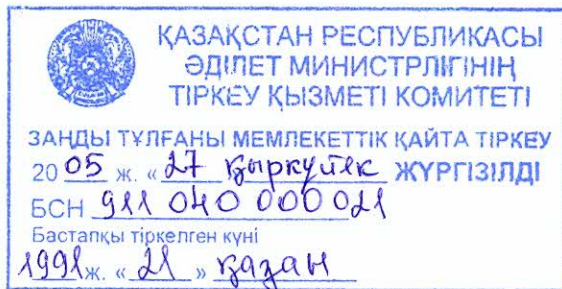 ҚАЗАҚСТАН РЕСПУБЛИКАСЫ
ӘДІЛЕТ МИНИСТРЛІГІНІҢ
ТІРКЕУ ҚЫЗМЕТІ КОМИТЕТІ
ЗАҢДЫ ТҰЛҒАНЫ МЕМЛЕКЕТТІК ҚАЙТА ТІРКЕУ
20 05 ж. « 27 қыркүйек ЖҮРГІЗІЛДІ
БСН 911 040 000 021
Бастапқы тіркелген күні
1991 ж. « 21 » қазан